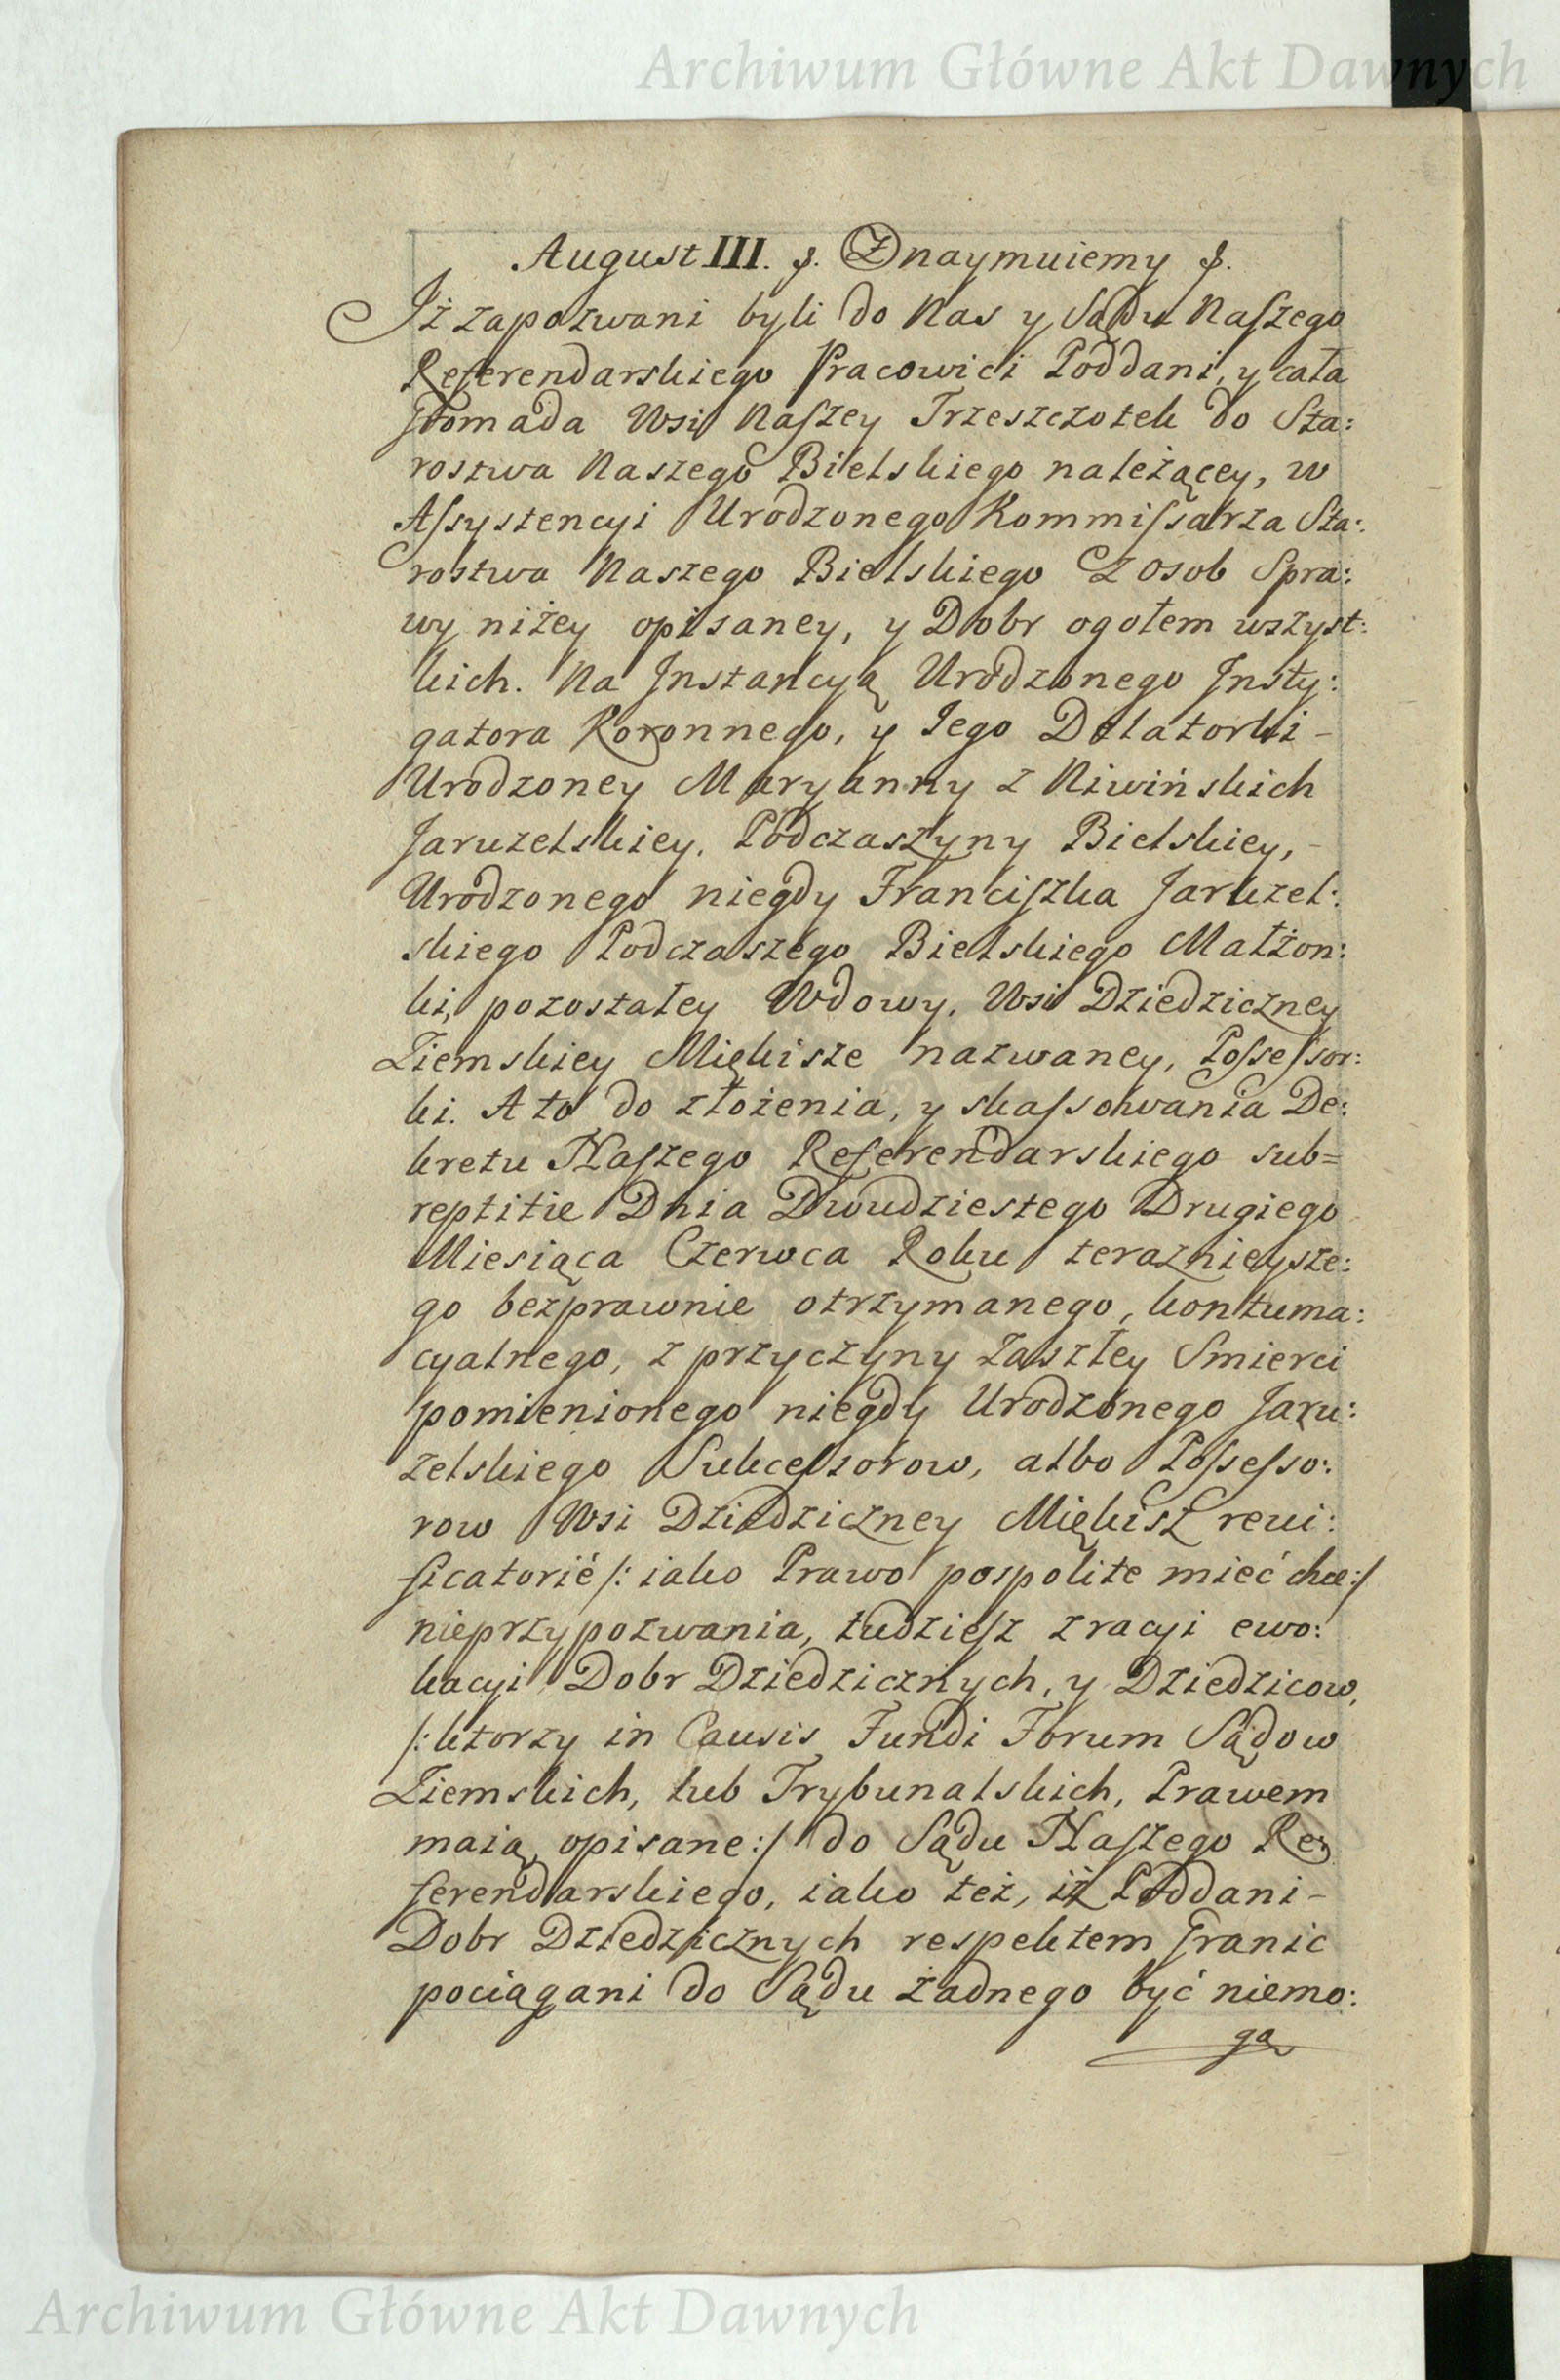 Archiwum Główne Akt Dawnych
August III. ꝭ. Znaymuiemy ꝭ.
Iż zapozwani byli do Nas y Sądu Naſzego
Referendarskiego Pracowici Poddani, y cała
Gromada Wsi Naſzey Trzeszczotek do Sta:
rostwa Naszego Bielskiego należącey, w
Aſsystencyi Urodzonego Kommiſsarza Sta:
rostwa Naszego Bielskiego Z osob Spra:
wy niżey opisaney, y Dobr ogołem wszyst:
kich. Na Jnstancyą Urodzonego Jnsty:
gatora Koronnego, y Iego Delatorki -
Urodzoney Maryanny z Niwińskich
Jaruzelskiey. Podczaszyny Bielskiey, -
Urodzonego niegdy Franciſzka Jaruzel:
skiego Podczaszego Bielskiego Małżon:
ki, pozostałey Wdowy. Wsi Dziedziczney
Ziemskiey Miękisze nazwaney, Poſseſsor:
ki. A to do złożenia, y skaſsowania De:
kretu Naſzego Referendarskiego sub=
reptitie Dnia Dwudziestego Drugiego
Miesiąca Czerwca Roku teraznieysze:
go bezprawnie otrzymanego, kontuma:
cyalnego, z przyczyny zaszłey Smierci
pomienionego niegdy Urodzonego Jaru:
zelskiego Sukceſsorow, albo Poſseſso:
row Wsi Dziedziczney Miękisz reui:
ficatorié /: iako Prawo pospolite mieć chce :/
nieprzypozwania, tudzieſz z racyi ewo:
kacyi Dobr Dziedzicznych, y Dziedzicow,
/: ktorzy in Causis Fundi Forum Sądow
Ziemskich, lub Trybunalskich, Prawem
maią opisane :/ do Sądu Naſzego Re:
ferendarskiego, iako też, iż Poddani -
Dobr Dziedzicznych respektem Granic
pociągani do Sądu żadnego być niemo:
gą
Archiwum Główne Akt Dawnych